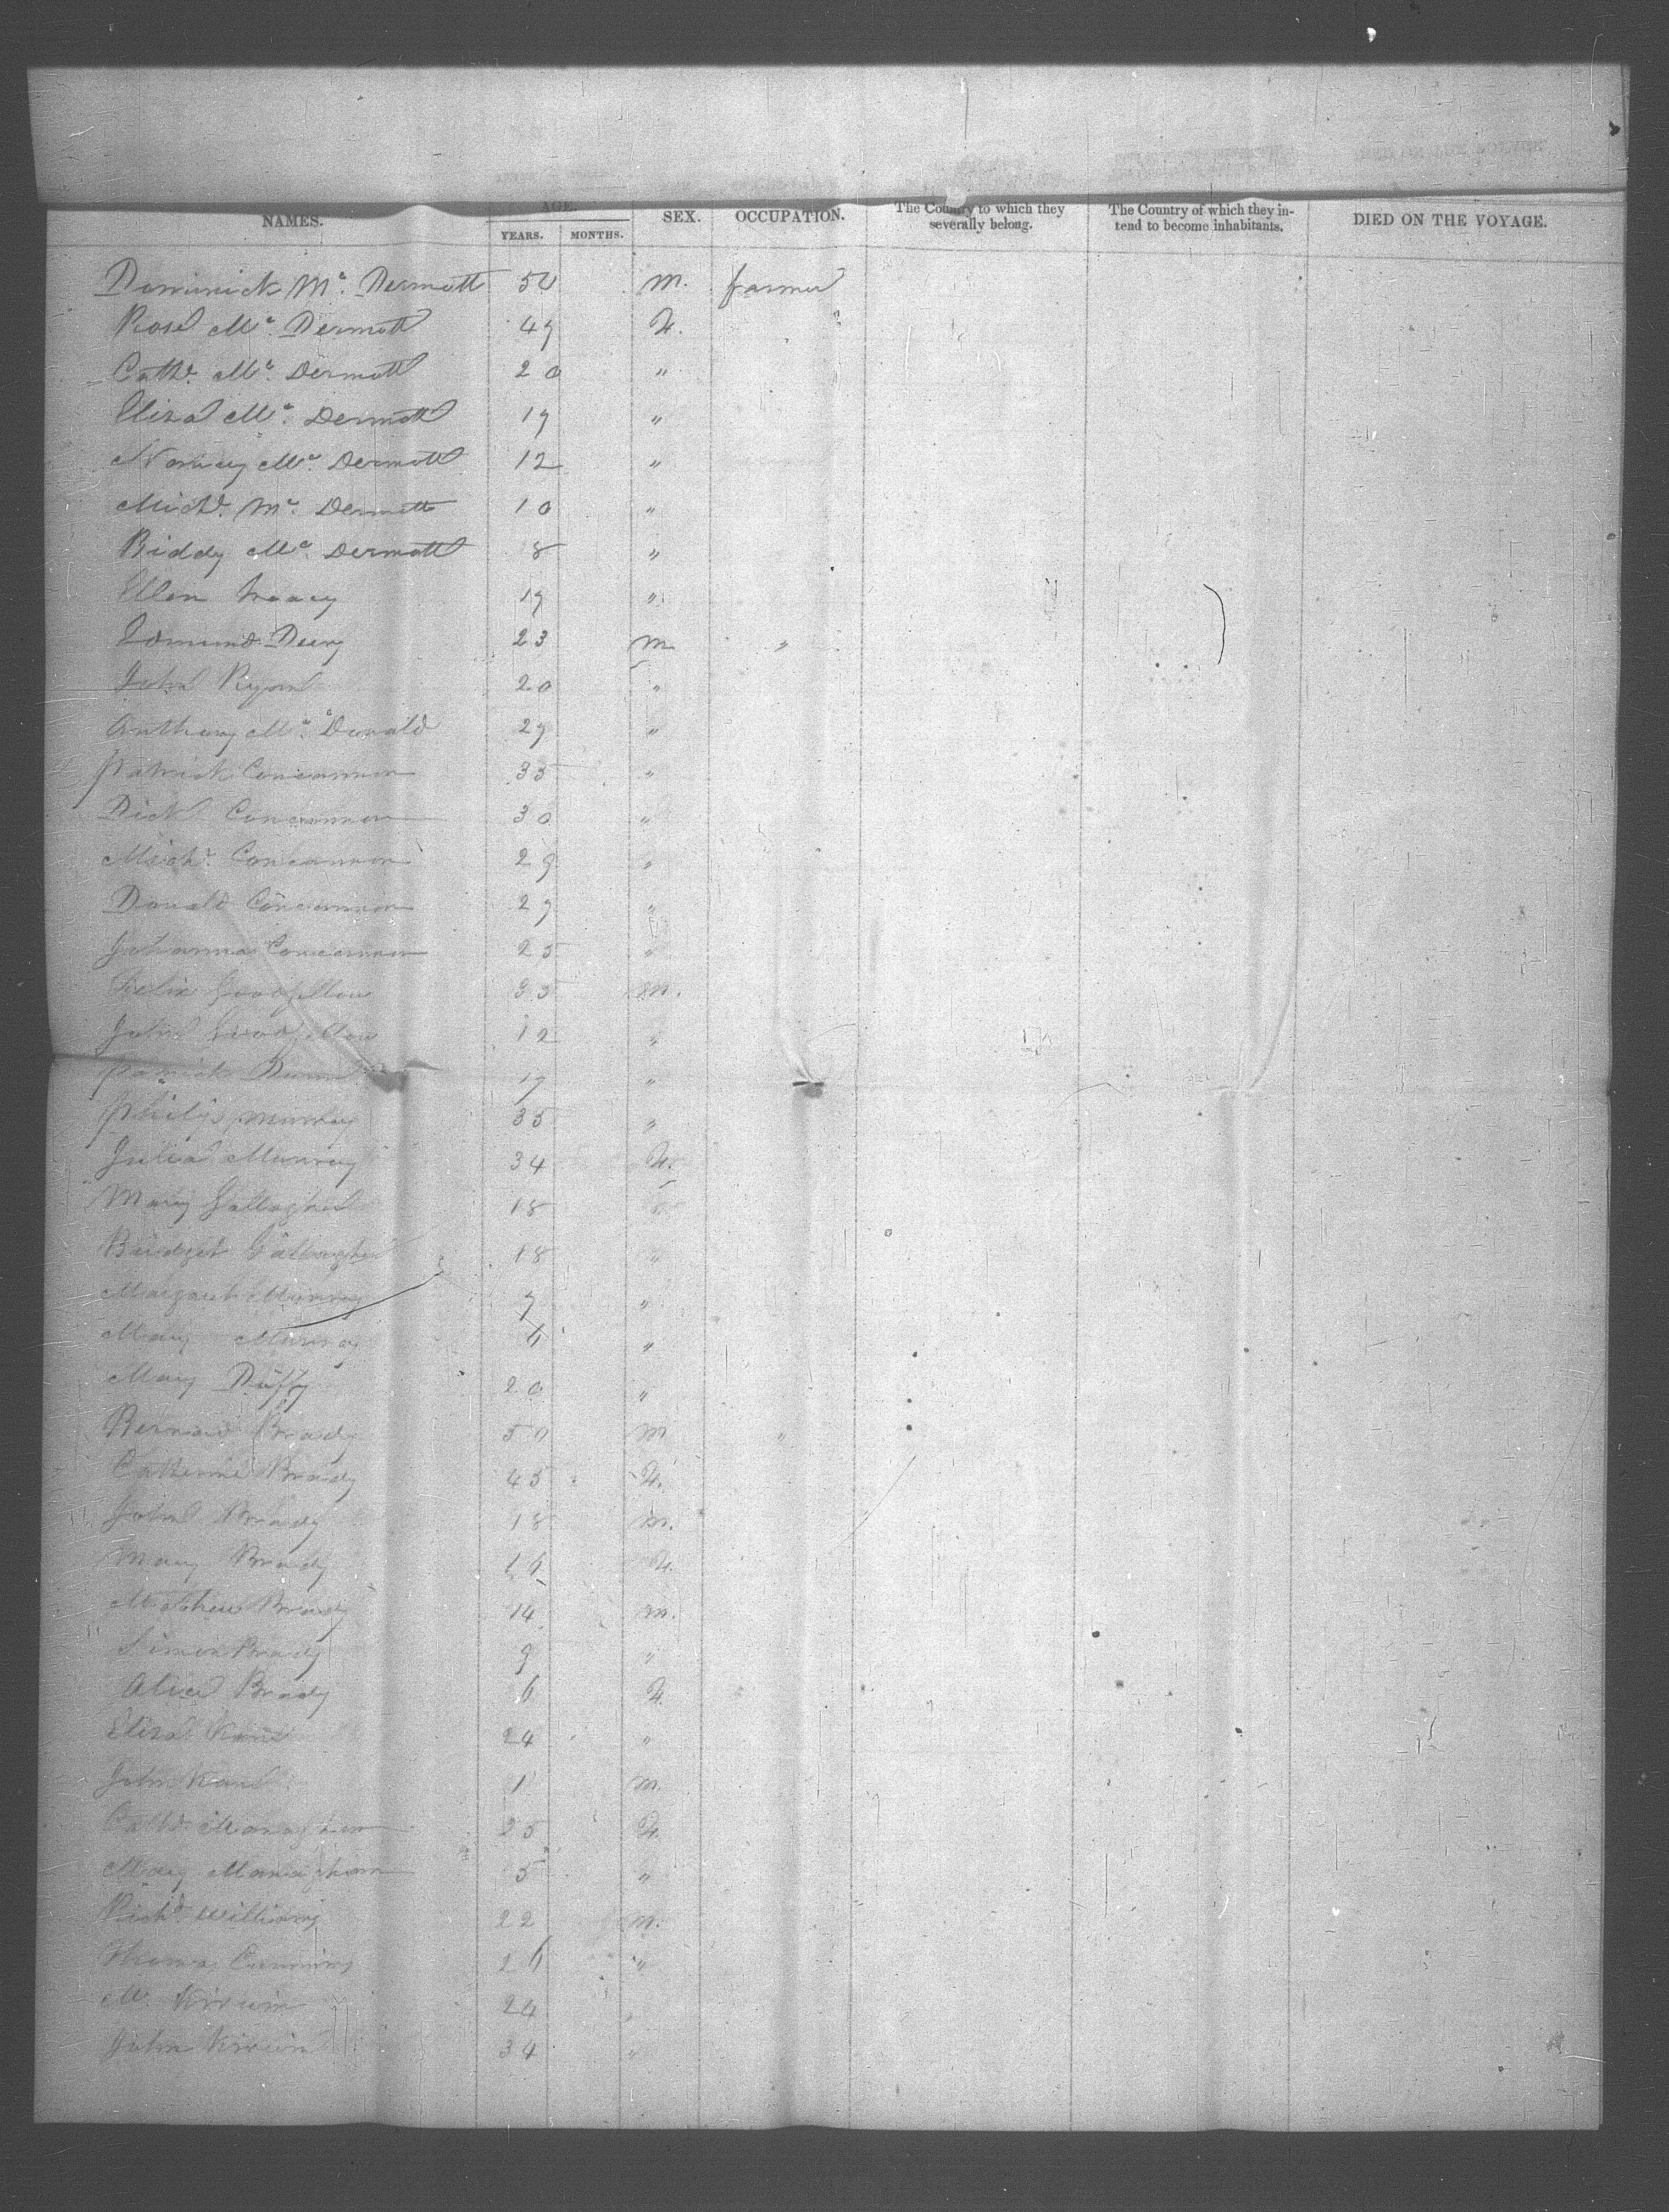 NAMES. AGE. SEX. OCCUPATION. The Country to which they severally belong. The Country of which they in-tend to become inhabitants. DIED ON THE VOYAGE.
YEARS. MONTHS.
Dominick Mc. Dermott 50 M. farmer
Rose Mc. Dermott 49 F.
Cathe. Mc. Dermott 20 "
Eliza Mc. Dermott 19 "
Mc. Dermott 12 "
Michl. Mc. Dermott 10 "
Biddy Mc. Dermott 8 "
Ellen 19 "
Edmund Deery 23 M "
John Ryan 20 "
Anthony Mc. Donald 29 "
Patrick Concannon 35 "
Dick Concannon 30 "
Michl. Concannon 29 "
Donald Concannon 27 "
Johanna Concannon 25 "
Felix Goodfellow 35 M.
John Goodfellow 12 "
Patrick Dunn 17 "
Philip Murray 35 "
Julia Murray 34 F.
Mary Gallagher 18 "
Bridget Gallagher 18 "
Margaret Murray 7 "
Mary Murray 6 "
Mary Duffy 20 "
Bernard Brady 50 M "
Catherine Brady 45 F.
John Brady 18 M.
Mary Brady 16 F.
Mathew Brady 14 M.
Simon Brady 9 "
Alice Brady 6 F.
Eliza Kane 24 "
John Kane 1 M.
Cathe. Monaghan 25 F.
Mary Monaghan 5 "
Richd. Williams 22 M.
Thomas Cummins 26 "
M. Kirwin 24 "
John Kirwin 34 "